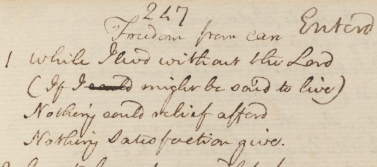 247
Freedom from care Enterd
1 While I livd without the Lord
(If I could might be said to live)
Nothing could relief afford
Nothing Satisfaction give.